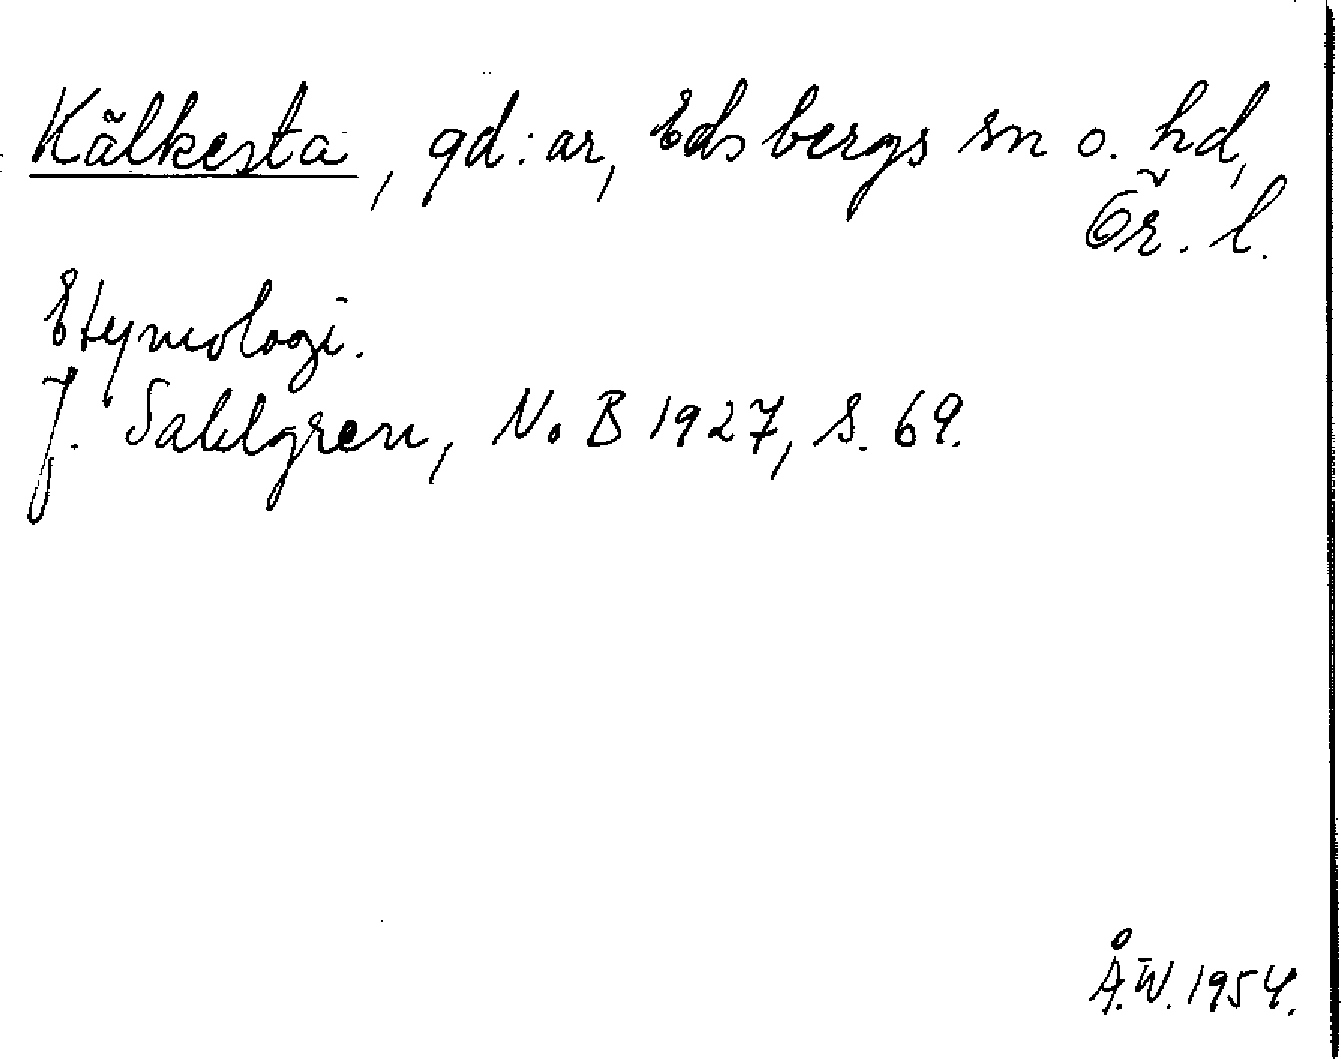 Källkesta, gd:ar, Edsbergs sn o. hd,
Ör. l.
Etymologi.
J. Sahlgren, NoB 1927, s. 69.
Å.W. 1954.